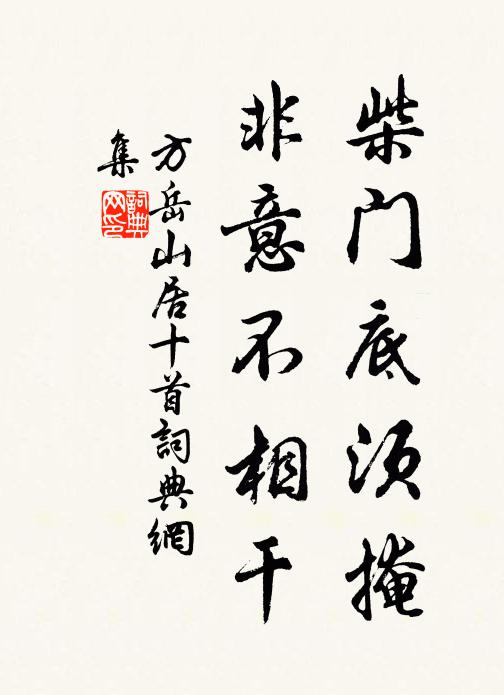 柴门底須掩
非意不相干
方岳山居十首詞典網
集
詞典
网印